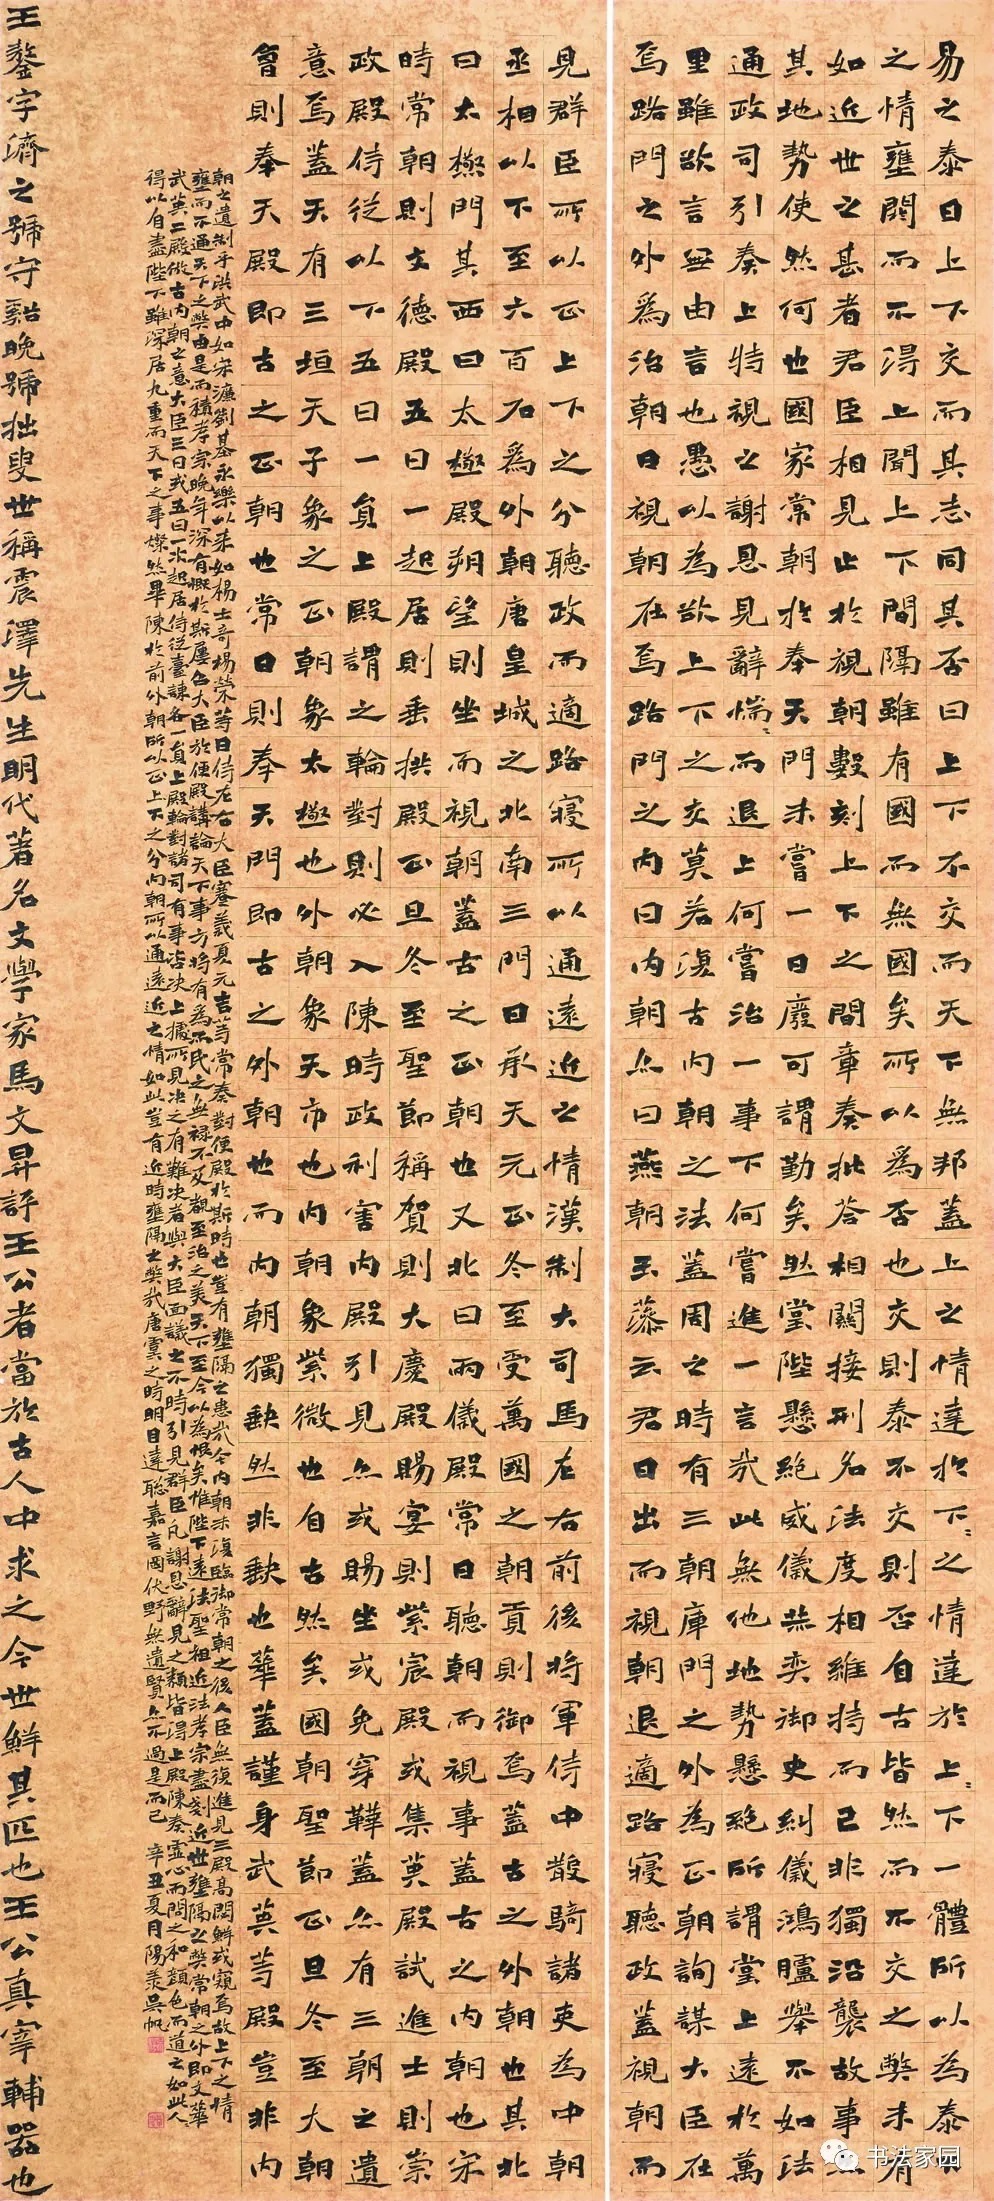 易之泰曰上下交而其志同其否曰上下不交而天下無邦蓋上之情達於下〻之情達於上〻下一體所以為泰
之情壅閼而不得上聞上下間隔雖有國而無國矣所以為否也交則泰不交則否自古皆然而不交之弊未有
如近世之甚者君臣相見止於視朝數刻上下之間章奏批答相關接刑名法度相維持而已非獨沿襲故事亦
其地勢使然何也國家常朝於奉天門未嘗一日廢可謂勤矣然堂陛懸絕威儀赫奕御史糾儀鴻臚舉不如法
通政司引奏上特視之謝恩見辭惴〻而退上何嘗治一事下何嘗進一言哉此無他地勢懸絕所謂堂上遠於萬
里雖欲言無由言也愚以為欲上下之交莫若復古內朝之法蓋周之時有三朝庫門之外為正朝詢謀大臣在
焉路門之外為治朝日視朝在焉路門之內曰內朝亦曰燕朝玉藻云君日出而視朝退適路寢聽政蓋視朝而
見群臣所以正上下之分聽政而適路寢所以通遠近之情漢制大司馬左右前後將軍侍中散騎諸吏為中朝
丞相以下至六百石為外朝唐皇城之北南三門曰承天元正冬至受萬國之朝貢則御焉蓋古之外朝也其北
曰太極門其西曰太極殿朔望則坐而視朝蓋古之正朝也又北曰兩儀殿常日聽朝而視事蓋古之內朝也宋
時常朝則文德殿五日一起居則垂拱殿正旦冬至聖節稱賀則大慶殿賜宴則紫宸殿或集英殿試進士則崇
政殿侍從以下五日一員上殿謂之輪對則必入陳時政利害內殿引見亦或賜坐或免穿鞾蓋亦有三朝之遺
意焉蓋天有三垣天子象之正朝象太極也外朝象天市也內朝象紫微也自古然矣國朝聖節正旦冬至大朝
會則奉天殿即古之正朝也常日則奉天門即古之外朝也而內朝獨缺然非缺也華蓋謹身武英等殿豈非內
朝之遺制乎洪武中如宋濂劉基永樂以來如楊士奇楊榮等日侍左右大臣蹇義夏元吉等常奏對便殿於斯時也豈有壅隔之患哉今內朝未復臨御常朝之後人臣無復進見三殿高閟鮮或窺焉故上下之情
壅而不通天下之弊由是而積孝宗晚年深有慨於斯屢召大臣於便殿講論天下事方將有為而民之無祿不及覩至治之美天下至今以為恨矣惟陛下遠法聖祖近法孝宗盡剗近世壅隔之弊常朝之外即文華
武英二殿倣古內朝之意大臣三日或五日一次起居侍從臺諫各一員上殿輪對諸司有事咨決上據所見決之有難決者與大臣面議之不時引見群臣凡謝恩辭見之類皆得上殿陳奏虛心而問之和顏色而道之如此人
得以自盡陛下雖深居九重而天下之事燦然畢陳於前外朝所以正上下之分內朝所以通遠近之情如此豈有近時壅隔之弊哉唐虞之時明目達聰嘉言罔伏野無遺賢亦不過是而已 辛丑夏月陽羨吳帆
王鏊字濟之號守谿晚號拙叟世稱震澤先生明代著名文學家馬文昇評王公者當於古人中求之今世鮮其匹也王公真宰輔器也
书法家园